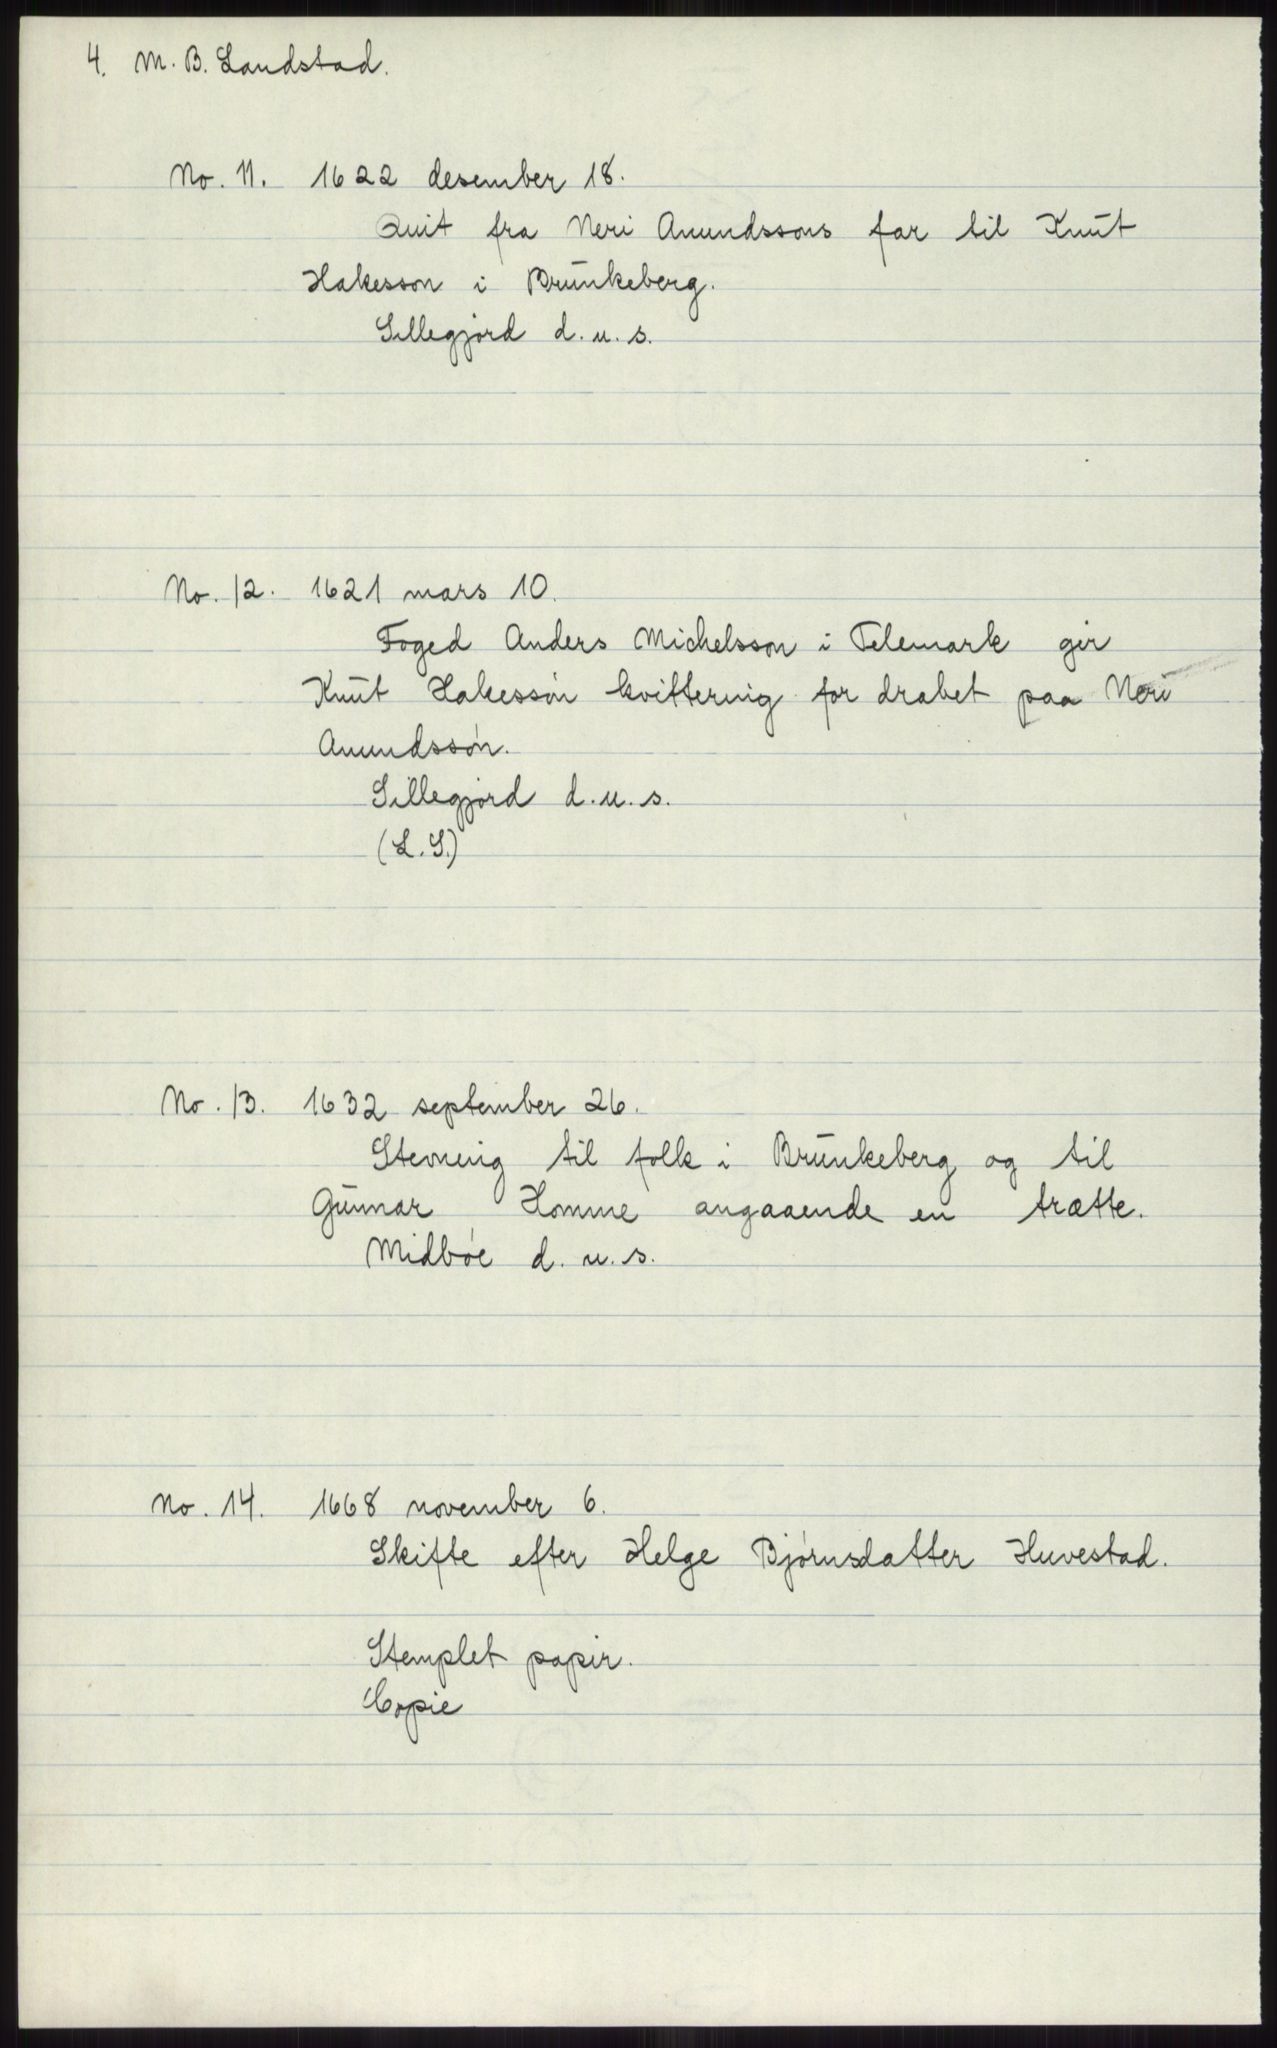 4. M. B. Landstad.
No. 11. 1622 desember 18.
Quit fra Neri Anundssons far til Knut
Hakesson i Brunkeberg.
Sillegjord d. u. s.
No. 12. 1621 mars 10.
Foged Anders Michelsson i Telemark gir
Knut Hakessøn kvittering for drabet paa Neri
Anundssøn.
Sillegjord d. u. s.
(L. S.)
No. 13. 1632 september 26.
Stevning til folk i Brunkeberg og til
Gunnar Homme angaaende en trætte.
Midbøe d. u. s.
No. 14. 1668 november 6.
Skifte efter Helge Bjørnsdatter Huvestad.
Stemplet papir.
Copie